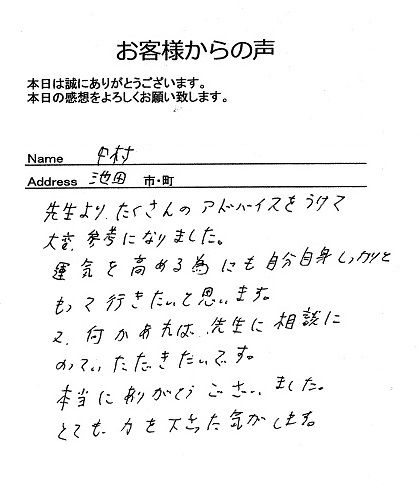 お客様からの声
本日は誠にありがとうございます。
本日の感想をよろしくお願い致します。
Name 中村
Address 池田 市・町
先生より、たくさんのアドバイスをうけて
大変、参考になりました。
運気を高める為にも自分自身しっかりと
もって行きたいと思います。
又、何かあれば、先生に相談に
のっていただきたいです。
本当にありがとうございました。
とても、力を下さった気がします。